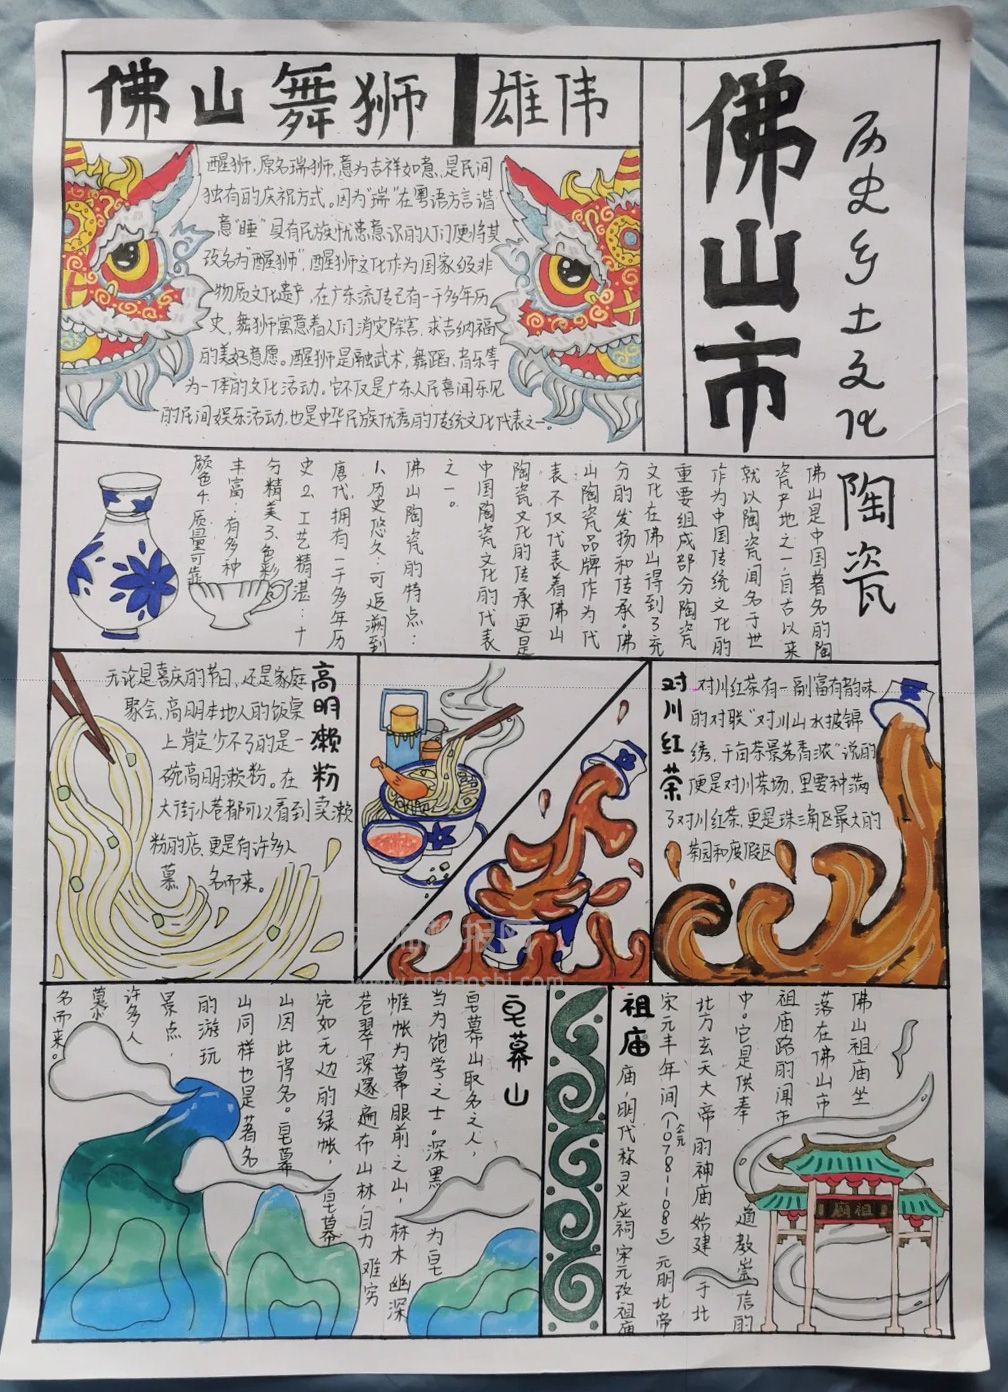 佛山舞狮
雄伟
醒狮,原名瑞狮,意为吉祥如意,是民间
独有的庆祝方式。因为"瑞"在粤语方言谐
意"睡"具有民族忧患意识的人们便将其
改名为"醒狮",醒狮文化作为国家级非
物质文化遗产,在广东流传已有一千多年历
史,舞狮寓意着人们消灾除害,求吉纳福
的美好意愿。醒狮是融武术,舞蹈,音乐等
为一体的文化活动。它不仅是广东人民喜闻乐见
的民间娱乐活动,也是中华民族优秀的传统文化代表之一。
佛山市
历史乡土文化
陶瓷
佛山是中国著名的陶
瓷产地之一,自古以来
就以陶瓷闻名于世
作为中国传统文化的
重要组成部分陶瓷
文化在佛山得到了充
分的发扬和传承。佛
山陶瓷品牌作为代
表不仅代表着佛山
陶瓷文化的传承更是
中国陶瓷文化的代表
之一。
佛山陶瓷的特点:
1.历史悠久:可追溯到
唐代,拥有一千多年历
史2.工艺精湛:十
分精美3.色彩
丰富:有多种
颜色4.质量可靠
高明濑粉
无论是喜庆的节日,还是家庭
聚会,高明本地人的饭桌
上肯定少不了的是一
碗高明濑粉。在
大街小巷都可以看到卖濑
粉的店,更是有许多人
慕名而来。
对川红茶
对川红茶有一副富有韵味
的对联"对川山水披锦
绣,千亩茶景茗清浓"说的
便是对川茶场,里要种满
了对川红茶,更是珠三角区最大的
茶园和度假区
皂幕山
皂幕山取名之人,
当为饱学之士。深黑为皂
帷帐为幕眼前之山,林木幽深
苍翠深邃遍布山林,目力难穷
宛如无边的绿帐,皂幕
山因此得名。皂幕
山同样也是著名
的游玩
景点,
许多人
慕
名而来。
祖庙
佛山祖庙坐
落在佛山市
祖庙路的闹市
中。它是供奉道教崇信的
北方玄天大帝的神庙始建于北
宋元丰年间(公元1078-1085)元明北帝
庙,明代称灵应祠宋元改祖庙
祖庙
www.pielaoshi.com